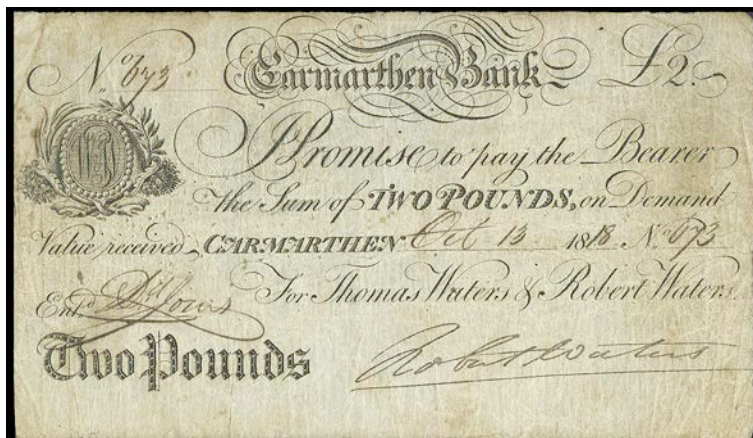 No 673 Carmarthen Bank £2.
I Promise to pay the Bearer
the Sum of TWO POUNDS, on Demand
Value received CARMARTHEN Oct 13 1818 No 673
For Thomas Waters & Robert Waters
Entd
Two Pounds Robert Waters